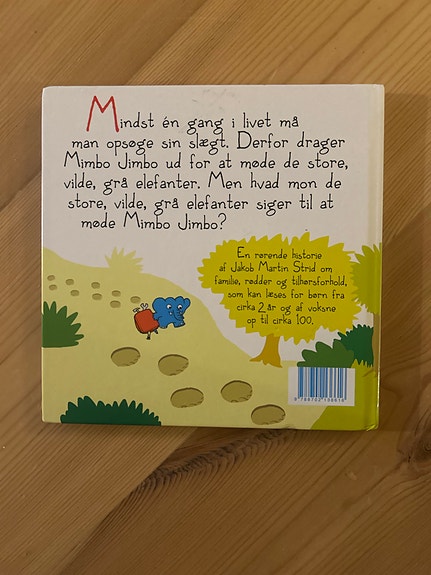 Mindst én gang i livet må
man opsøge sin slægt. Derfor drager
Mimbo Jimbo ud for at møde de store,
vilde, grå elefanter. Men hvad mon de
store, vilde, grå elefanter siger til at
møde Mimbo Jimbo?
En rørende historie
af Jakob Martin Strid om
familie, rødder og tilhørsforhold,
som kan læses for børn fra
cirka 2 år og af voksne
op til cirka 100.